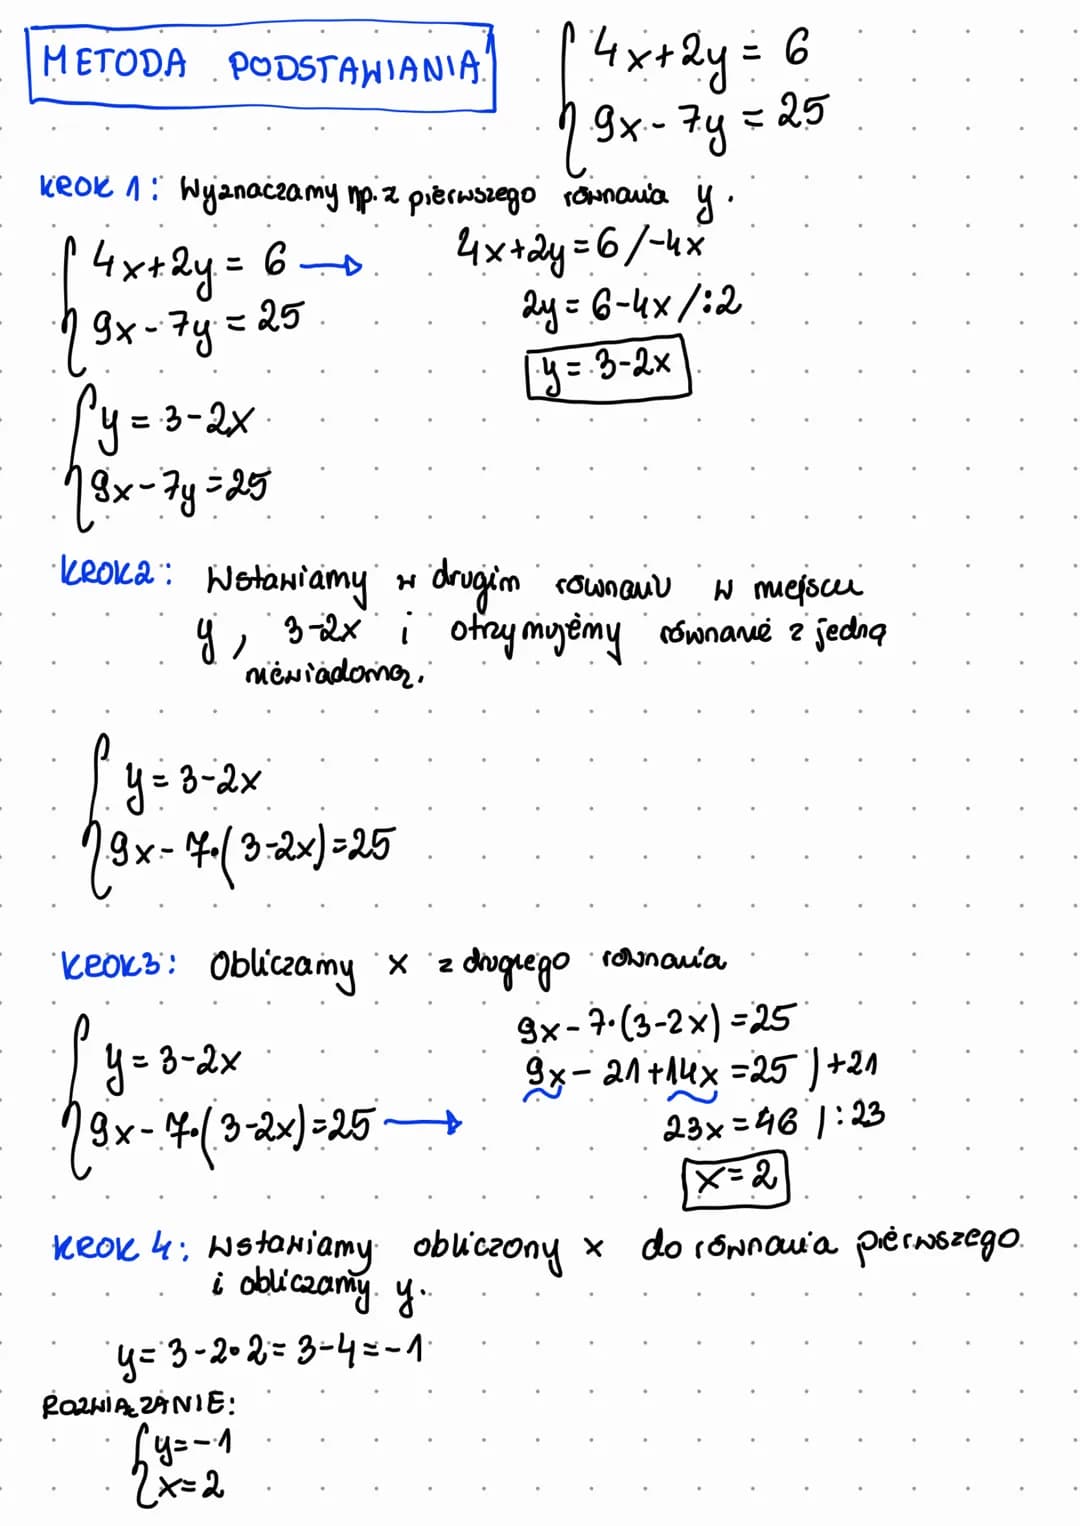 METODA PODSTAWIANIA
{ 4x+2y = 6
9x - 7y = 25
KROK 1: Wyznaczamy np. z pierwszego równania y.
{ 4x+2y = 6 →
9x - 7y = 25
4x+2y = 6 /-4x
2y = 6-4x /:2
y = 3-2x
{ y = 3-2x
9x - 7y = 25
KROK 2: Wstawiamy w drugim równaniu w miejscu
y, 3-2x i otrzymujemy równanie z jedną
niewiadomą.
{ y = 3-2x
9x - 7·(3-2x) = 25
KROK 3: Obliczamy x z drugiego równania
{ y = 3-2x
9x - 7·(3-2x) = 25 →
9x - 7·(3-2x) = 25
9x - 21 + 14x = 25 | +21
23x = 46 | :23
x = 2
KROK 4: Wstawiamy obliczony x do równania pierwszego
i obliczamy y.
y = 3-2·2 = 3-4 = -1
ROZWIĄZANIE:
{ y = -1
x = 2